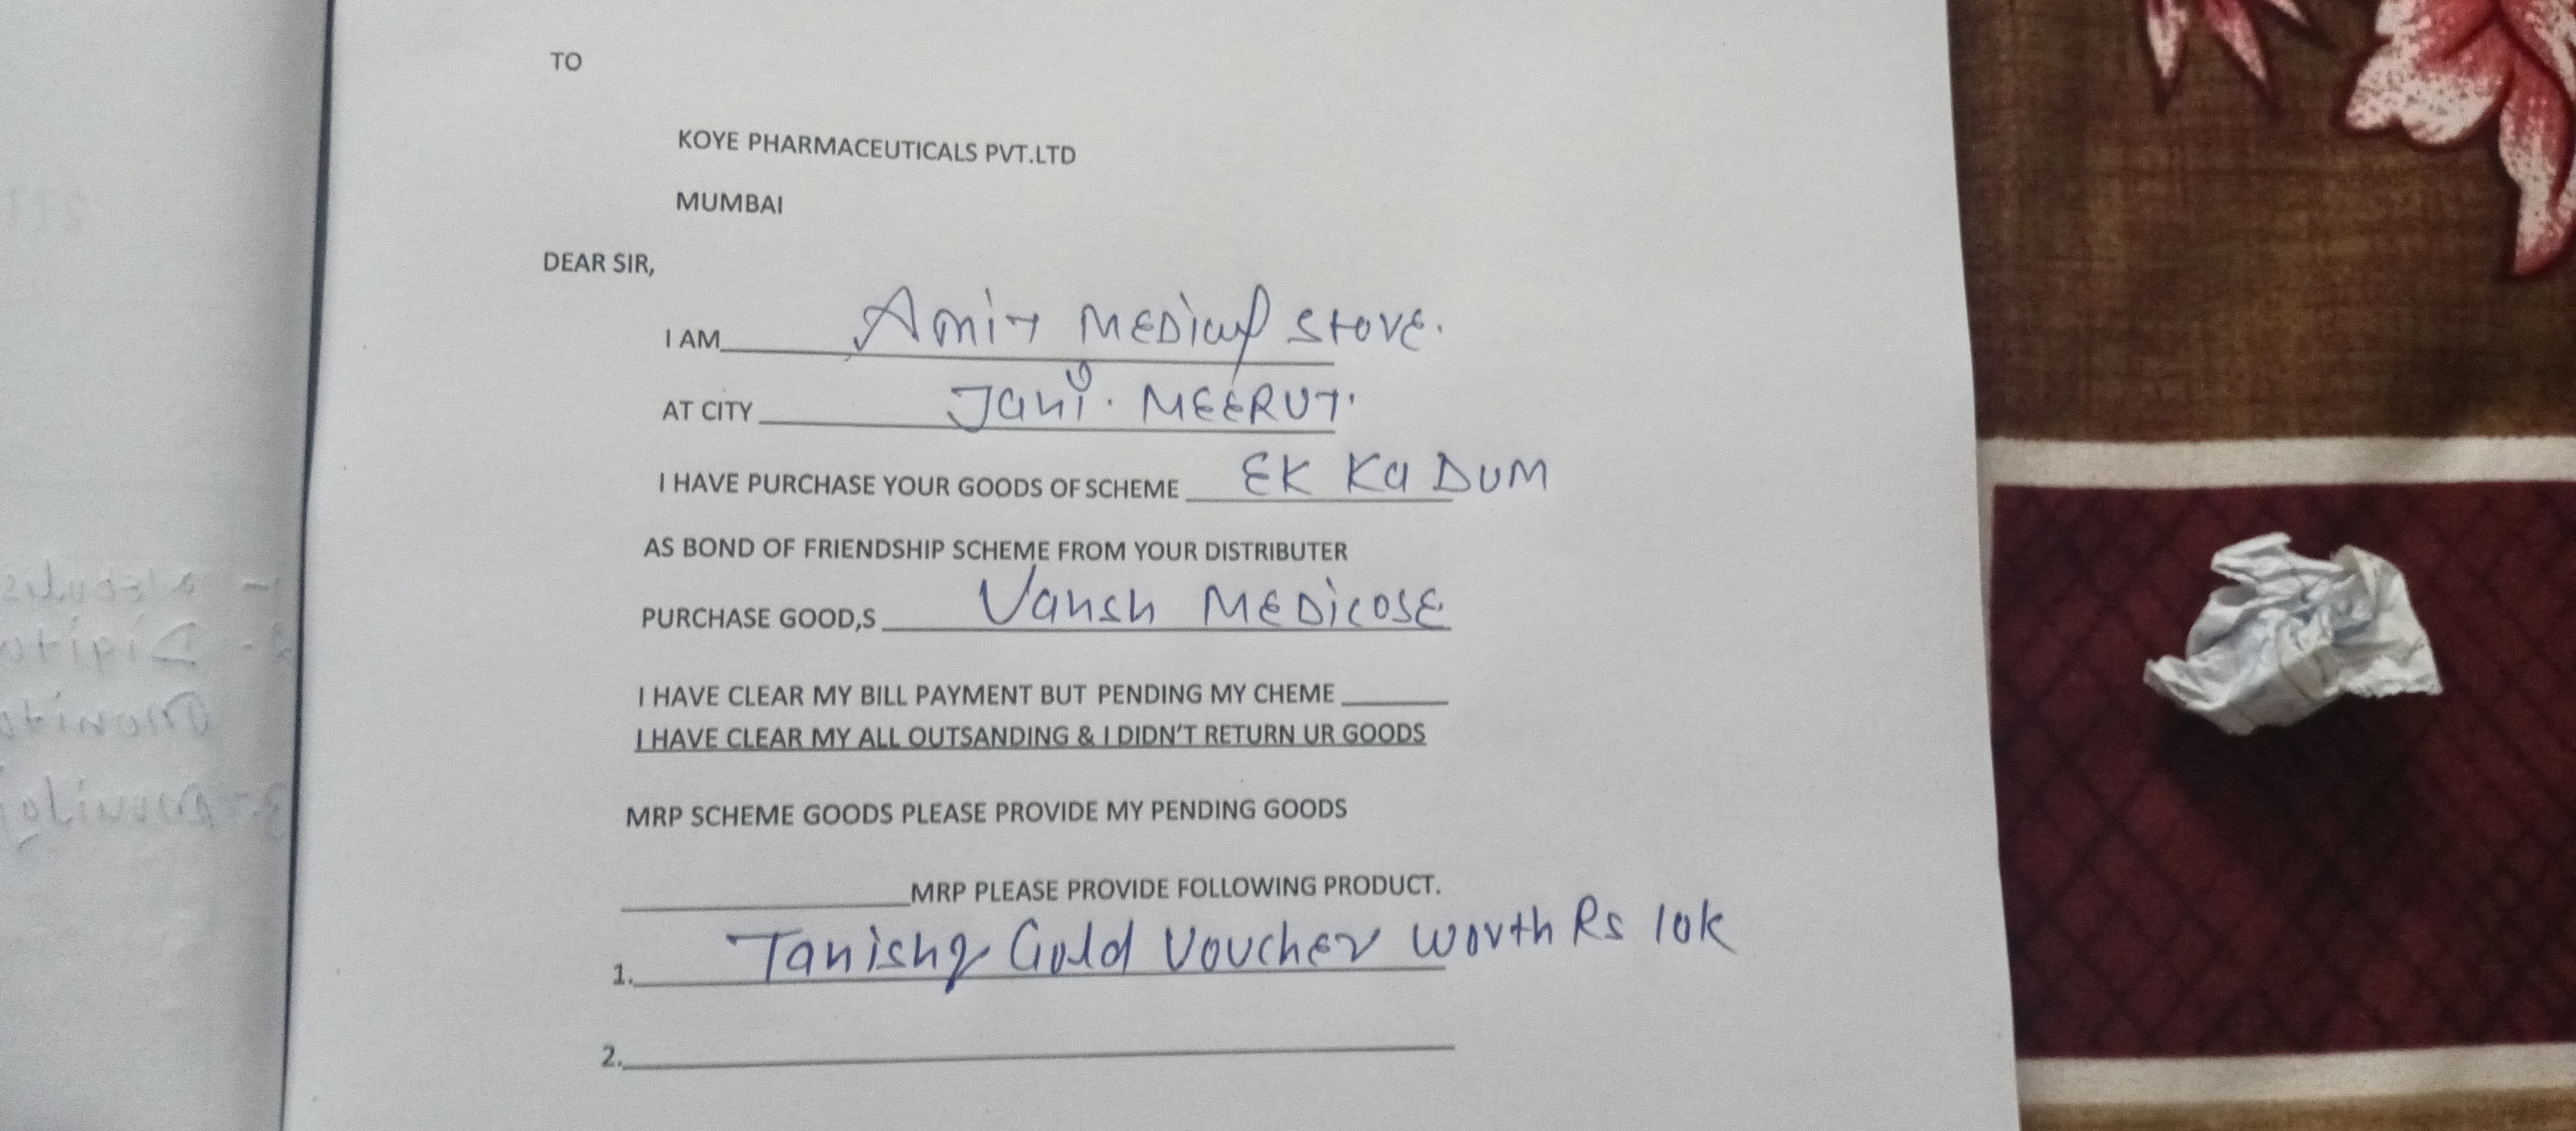 TO
KOYE PHARMACEUTICALS PVT.LTD
MUMBAI
DEAR SIR,
I AM Amit MEDical Store.
AT CITY Jani. MEERUT.
I HAVE PURCHASE YOUR GOODS OF SCHEME EK Ka DUM
AS BOND OF FRIENDSHIP SCHEME FROM YOUR DISTRIBUTER
PURCHASE GOOD,S Vansh MEDicosE
I HAVE CLEAR MY BILL PAYMENT BUT PENDING MY CHEME
I HAVE CLEAR MY ALL OUTSANDING & I DIDN'T RETURN UR GOODS
MRP SCHEME GOODS PLEASE PROVIDE MY PENDING GOODS
MRP PLEASE PROVIDE FOLLOWING PRODUCT.
1. Tanishq Gold Voucher worth Rs 10k
2.